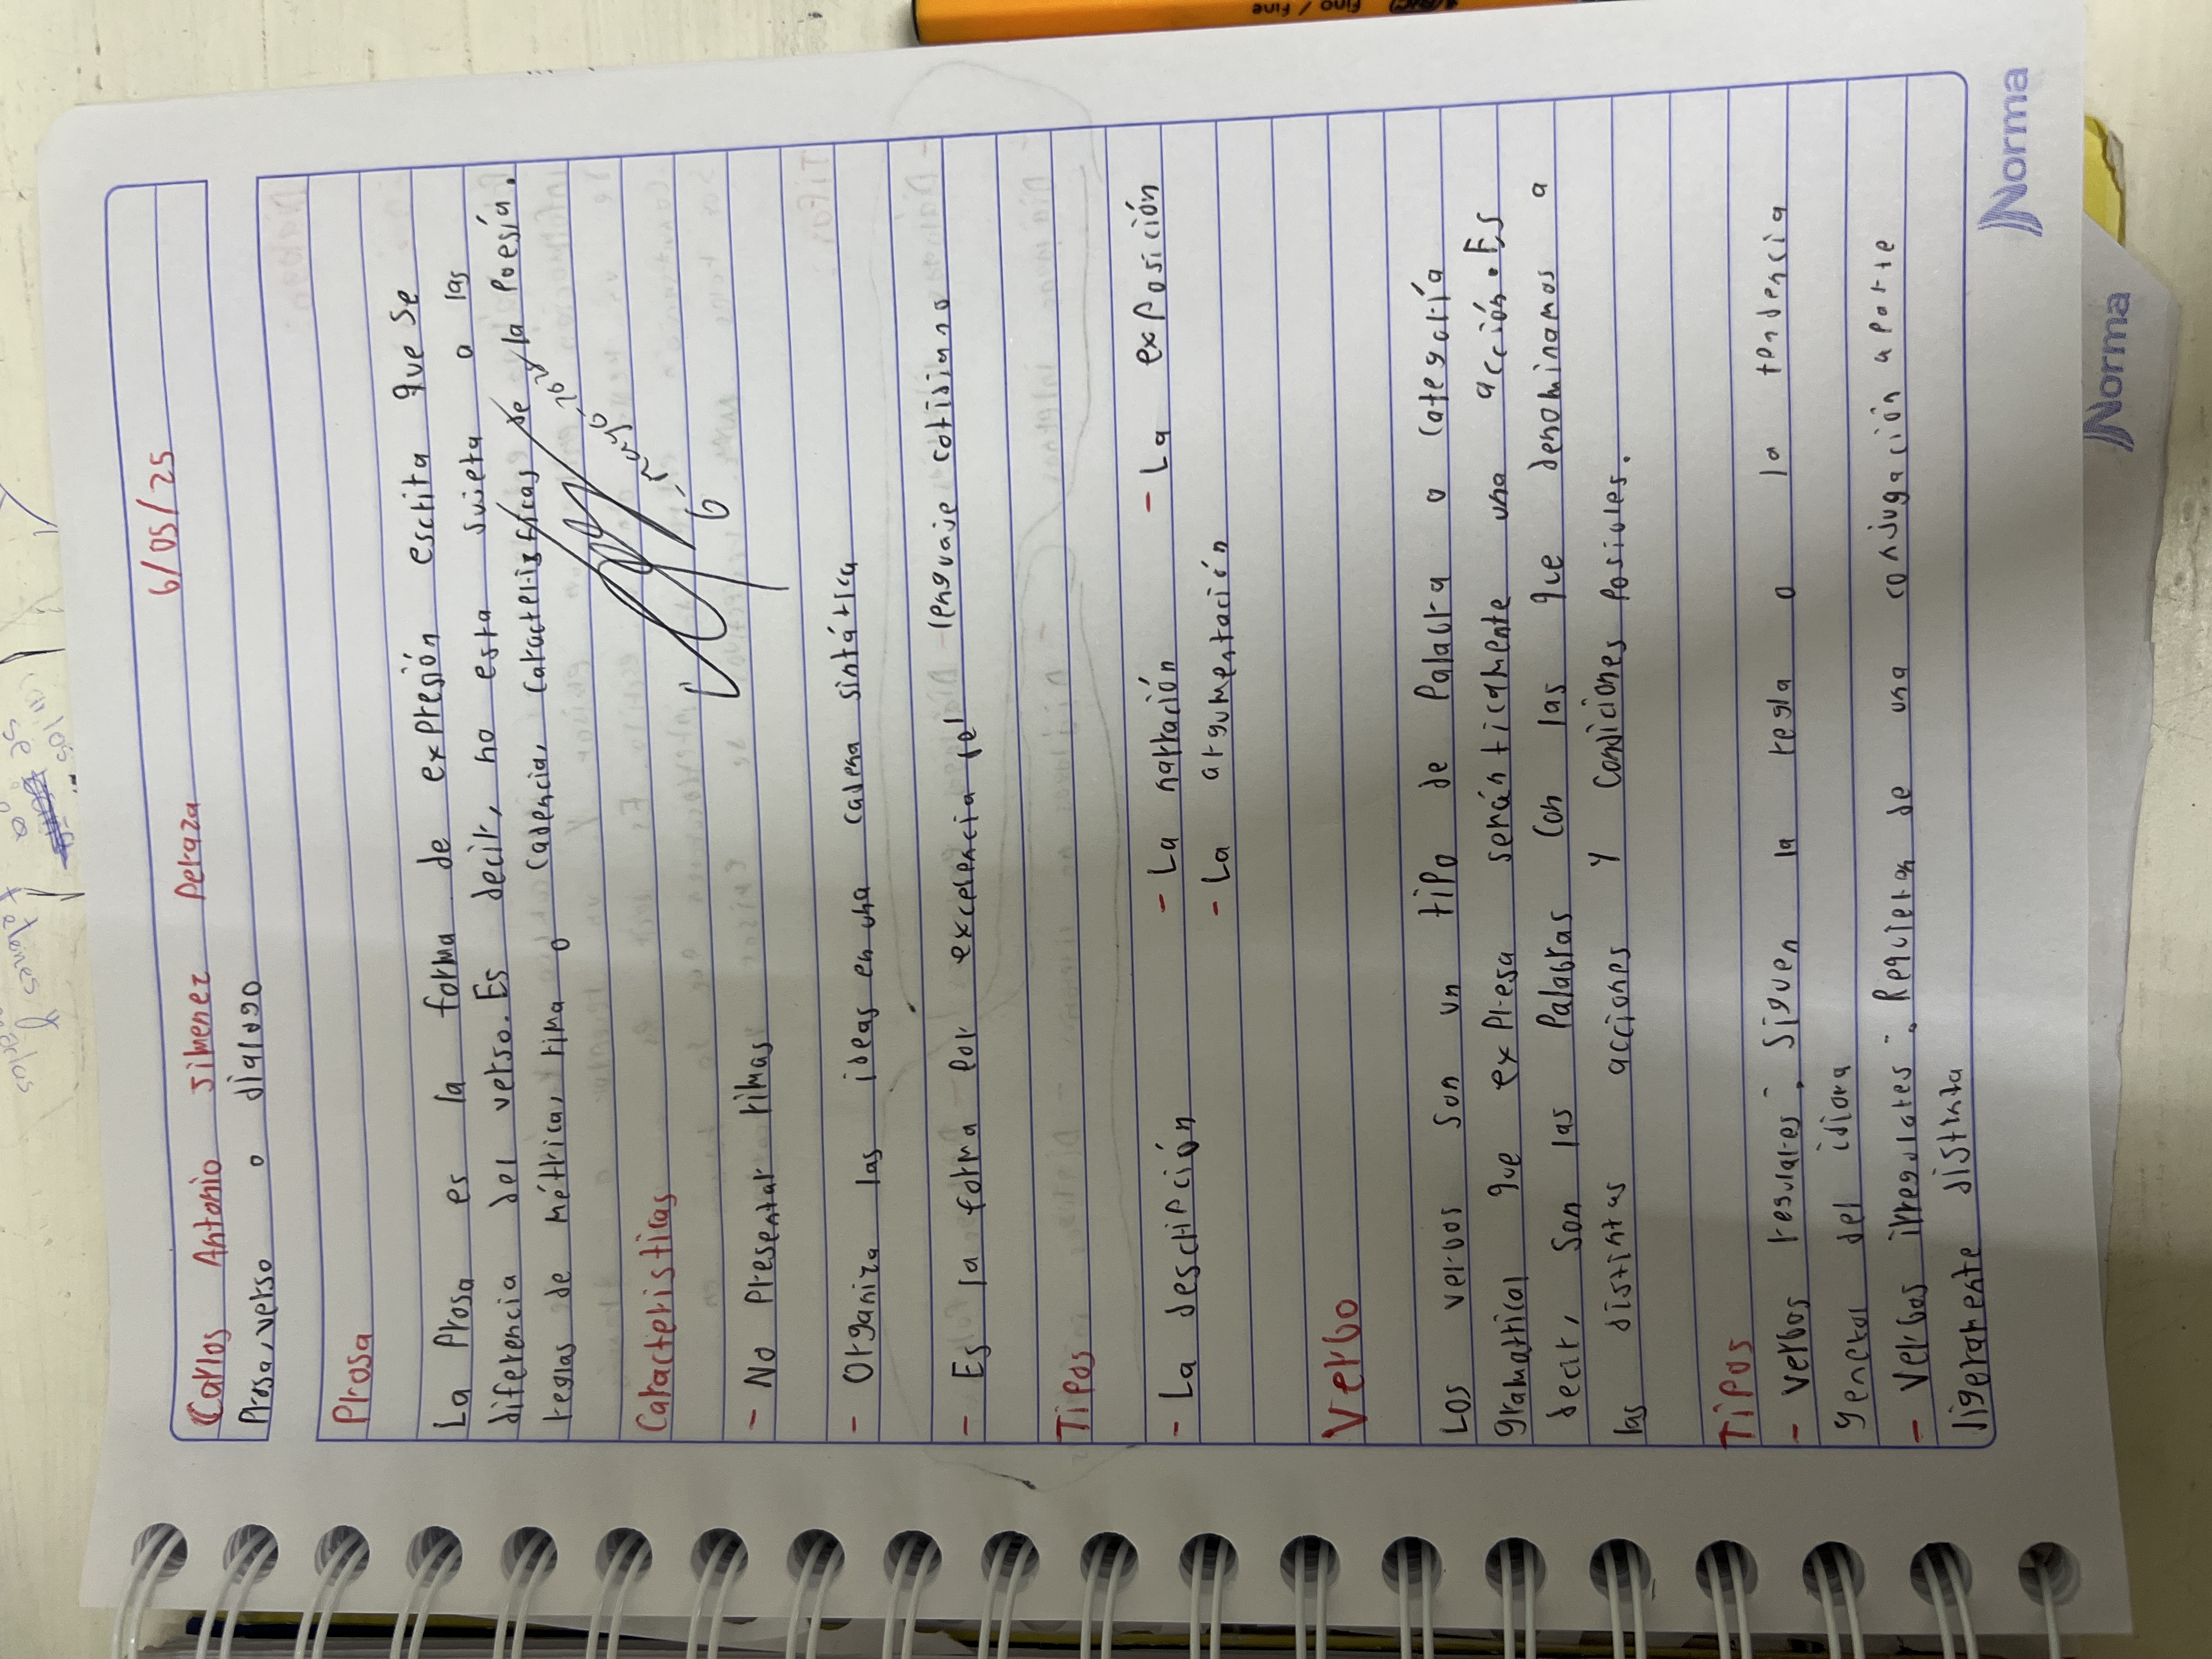 Carlos Antonio Jimenez Peraza 6/05/25
Prosa, verso o dialogo
Prosa
La Prosa es la forma de expresión escrita que se
diferencia del verso. Es decir, no esta sujeta a las
reglas de métrica, rima o cadencia, caracteristicas de la Poesía.
Caracteristicas
- No Presentar rimas
- Organiza las ideas en una cadena sintática
- Es la forma por excelencia del lenguaje cotidiano
Tipos
- La descripción - La narración - La exposición
- La argumentación
Verbo
Los verbos son un tipo de Palabra o categoría
gramatical que expresa semánticamente una acción. Es
decir, Son las Palabras con las que denominamos a
las distintas acciones y condiciones Posibles.
Tipos
- Verbos regulares: Siguen la regla o la tendencia
general del idioma
- Verbos irregulares: Requieren de una conjugación aparte
ligeramente distinta
Norma
Norma
fino / fine